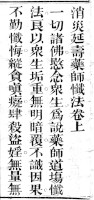 消災延壽藥師懺卷上
一切諸佛愍念衆生爲說藥師道場懺
法良以衆生垢重無明暗覆不識因果
不勤懺悔縱貪瞋癡肆殺盜婬無量無